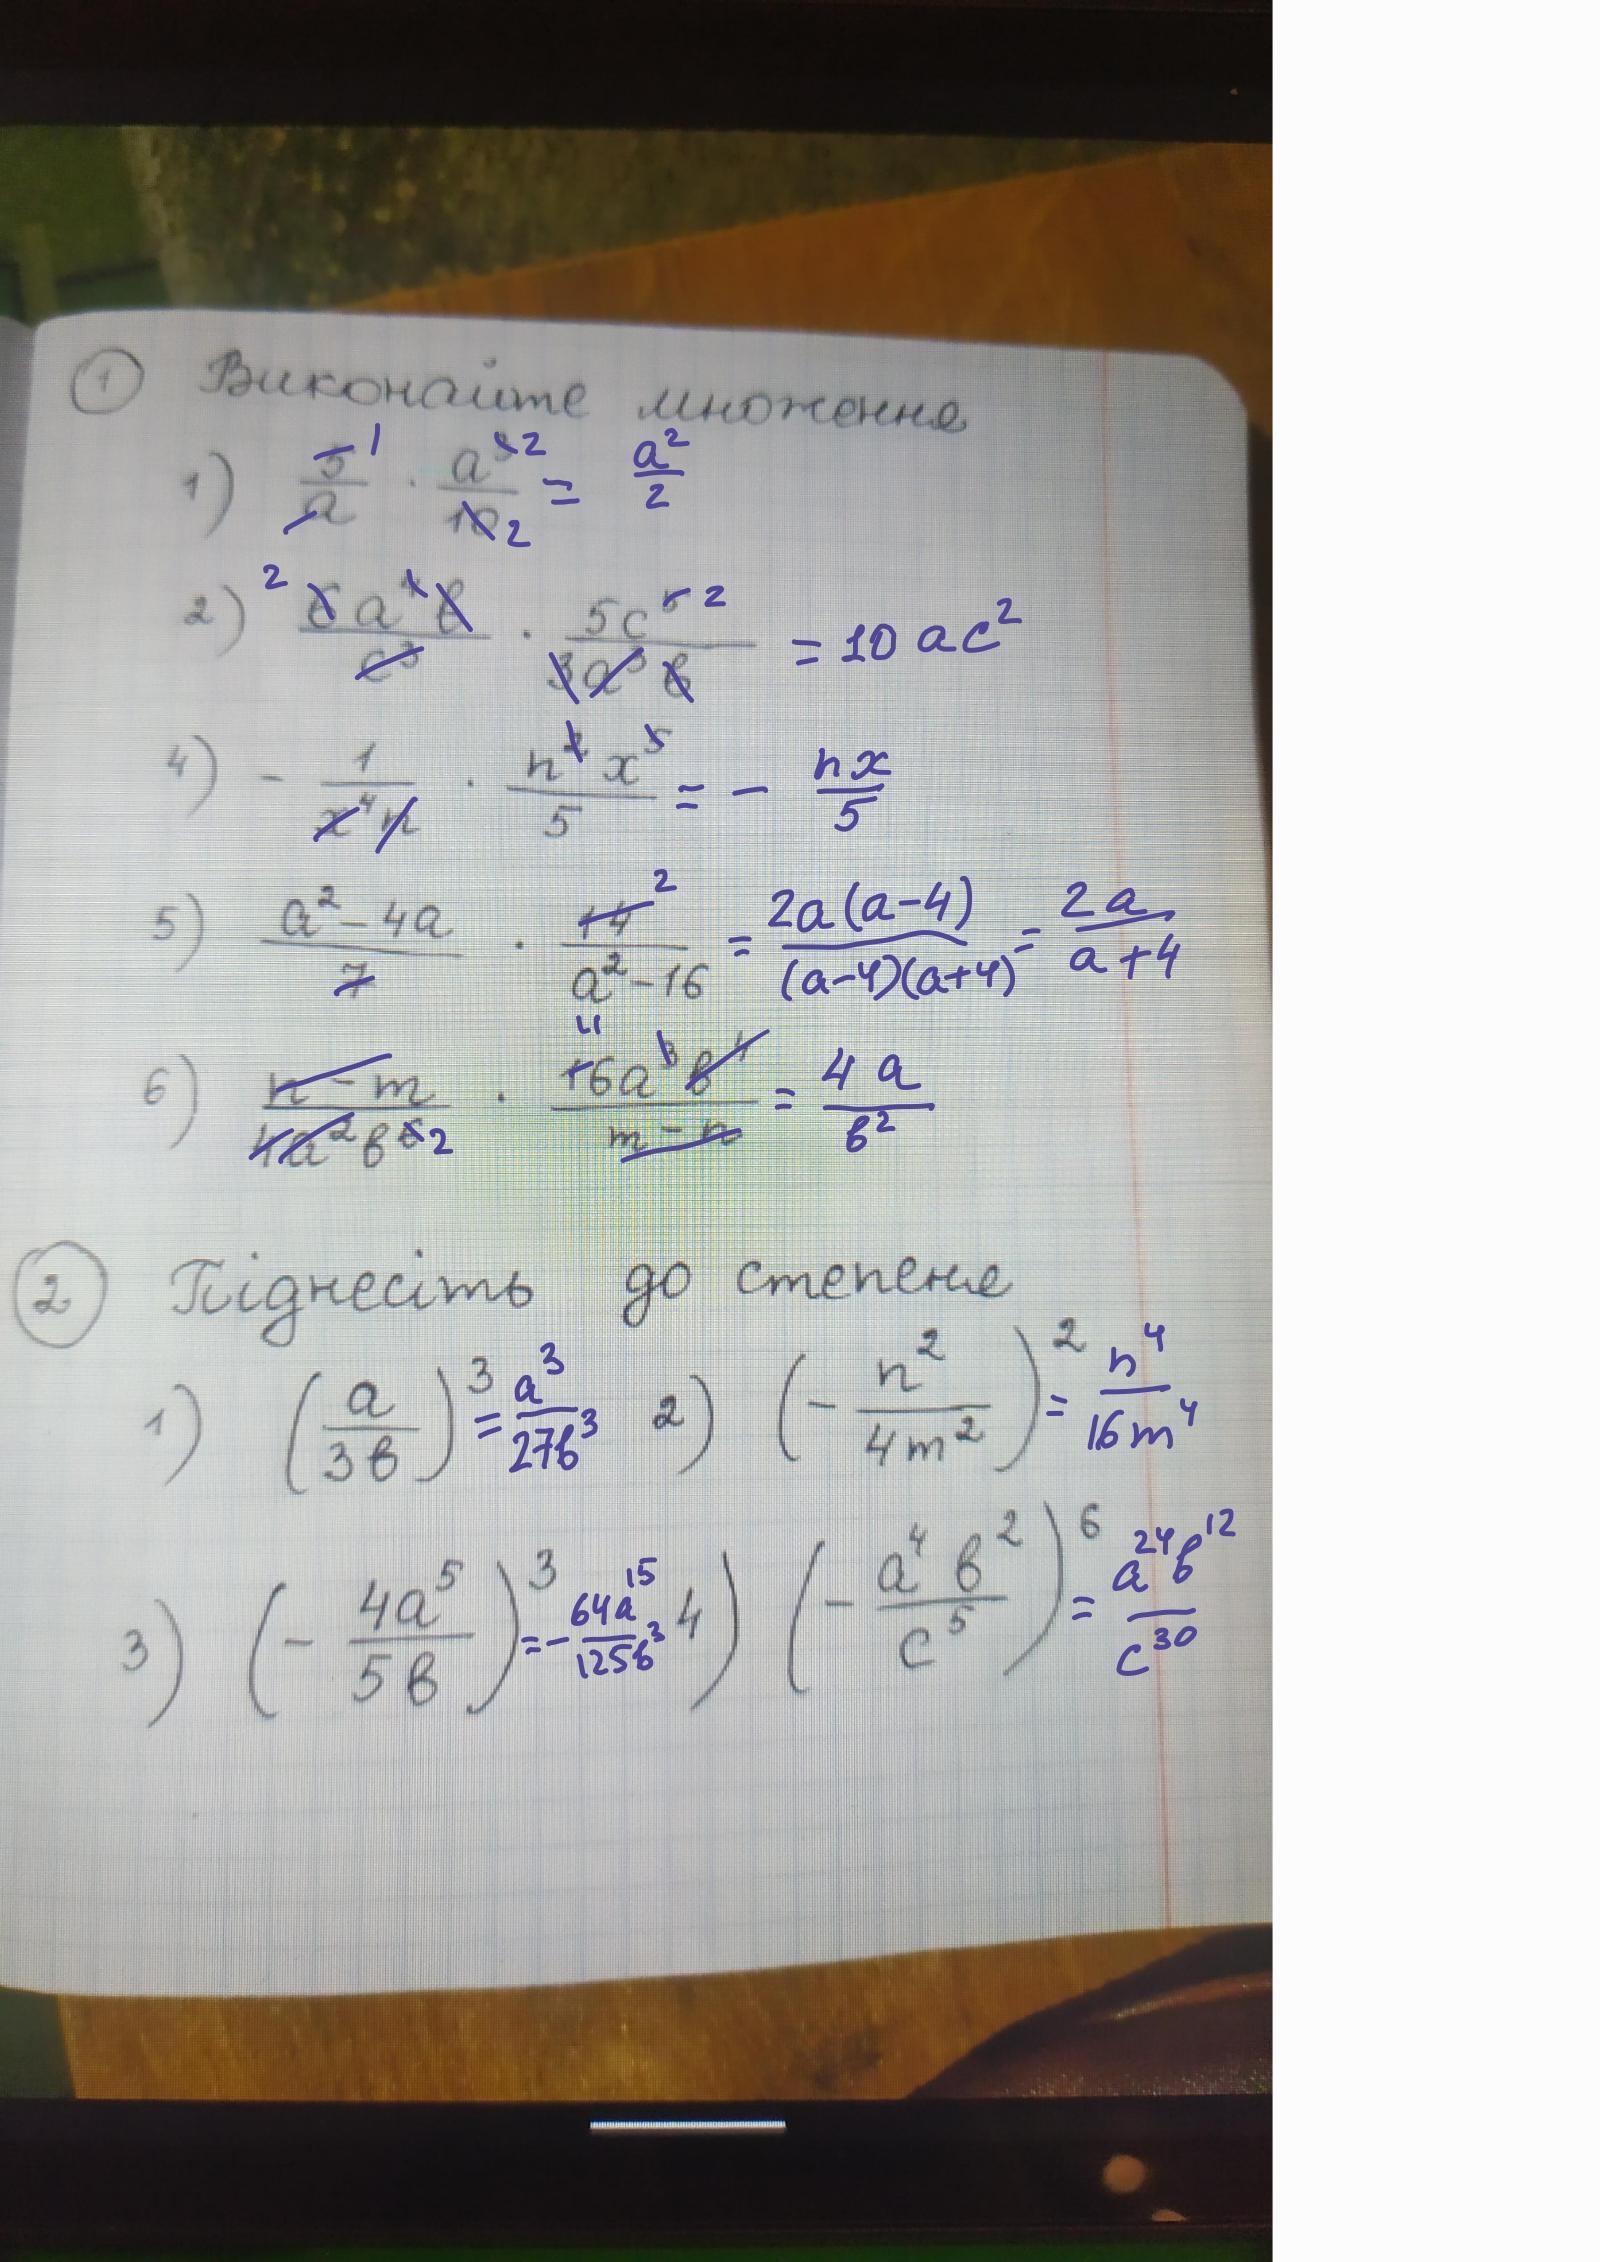 ① Виконайте множення
1) 5/a · a³/10 = a²/2
2) 6a⁴b/c³ · 5c⁵/3a³b = 10ac²
4) - 1/x⁴n · n²x⁵/5 = - nx/5
5) a²-4a/7 · 14/a²-16 = 2a(a-4)/(a-4)(a+4) = 2a/a+4
6) n-m/4a²b⁶ · 16a³b⁴/m-n = 4a/b²
② Піднесіть до степеня
1) (a/3b)³ = a³/27b³ 2) (- n²/4m²)² = n⁴/16m⁴
3) (- 4a⁵/5b)³ = - 64a¹⁵/125b³ 4) (- a⁴b²/c⁵)⁶ = a²⁴b¹²/c³⁰